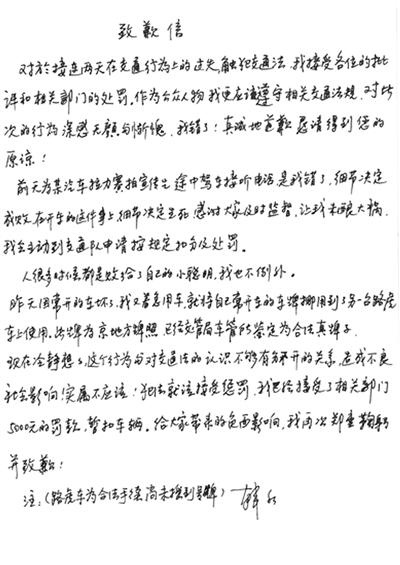 致歉信
对於接连两天在交通行为上的过失,触犯交通法,我接受各位的批
评和相关部门的处罚,作为公众人物我更应该遵守相关交通法规,对此
次的行为深感无颜与惭愧,我错了!真诚地道歉 恳请得到您的
原谅!
前天为某汽车接力赛拍宣传片途中驾车接听电话,是我错了,细节决定
成败,在开车的这件事上,细节决定生死 感谢大家及时监督,让我未酿大祸,
我会主动到交通队申请按规定扣分及处罚。
人很多时候都是败给了自己的小聪明,我也不例外。
昨天因常开的车坏了,我又着急用车,就将自己常开车的车牌挪用到了另一台路虎
车上使用。此牌为京地方牌照 已经交管局车管所鉴定为合法真牌子
现在冷静想了,这个行为与对交通法的认识不够有分不开的关系,造成不良
社会影响 实属不应该!犯法就该接受惩罚,我已经接受了相关部门
5000元的罚款,暂扣车辆。给大家带来的负面影响,我再次郑重鞠躬
并致歉!
注:(路虎车为合法手续 尚未挂到号牌)